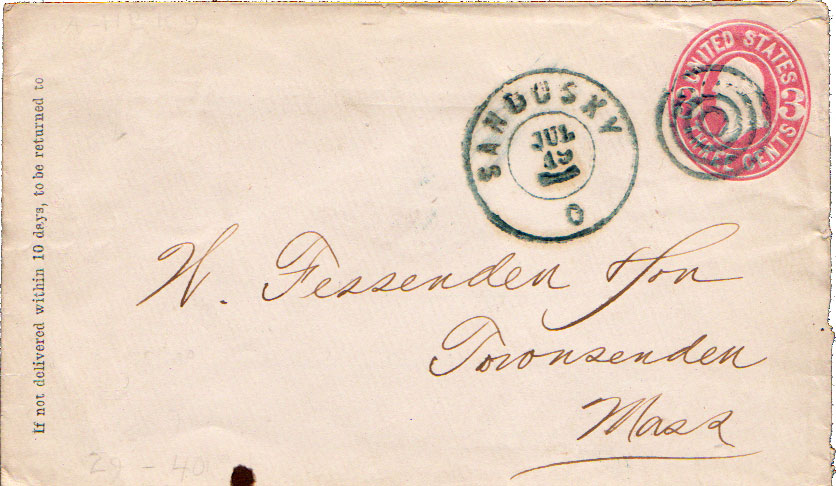 If not delivered within 10 days, to be returned to
SANDUSKY
JUL
19
O
UNITED STATES
3 3
THREE CENTS
W. Fessenden & Son
Townsenden
Mass
29 - 40